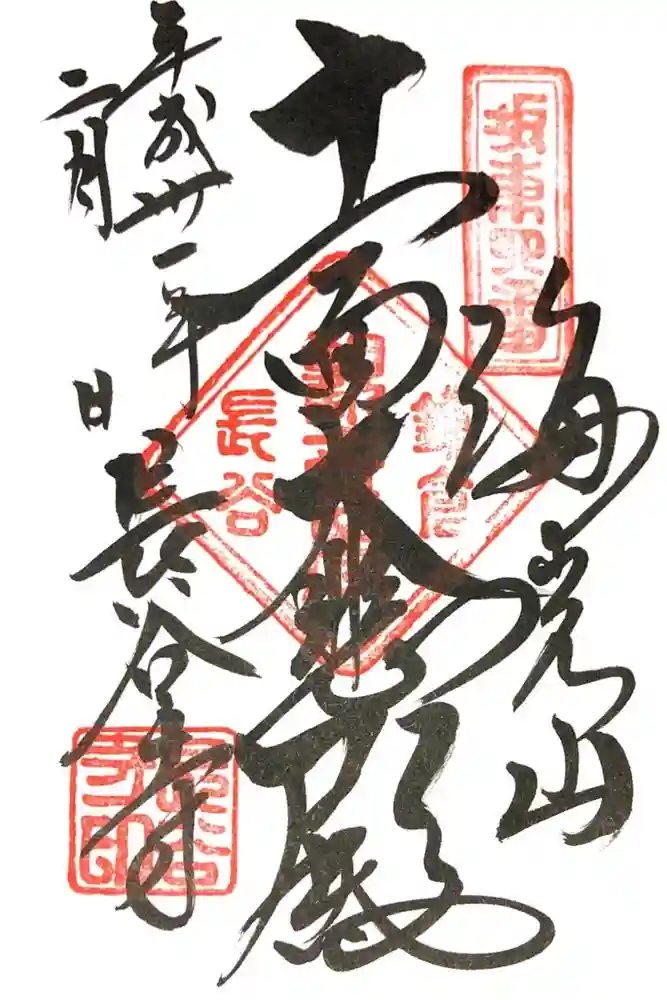 坂東四番
海光山
十一面大悲殿
鎌倉
観音
長谷
平成卅一年
二月 日
長谷寺